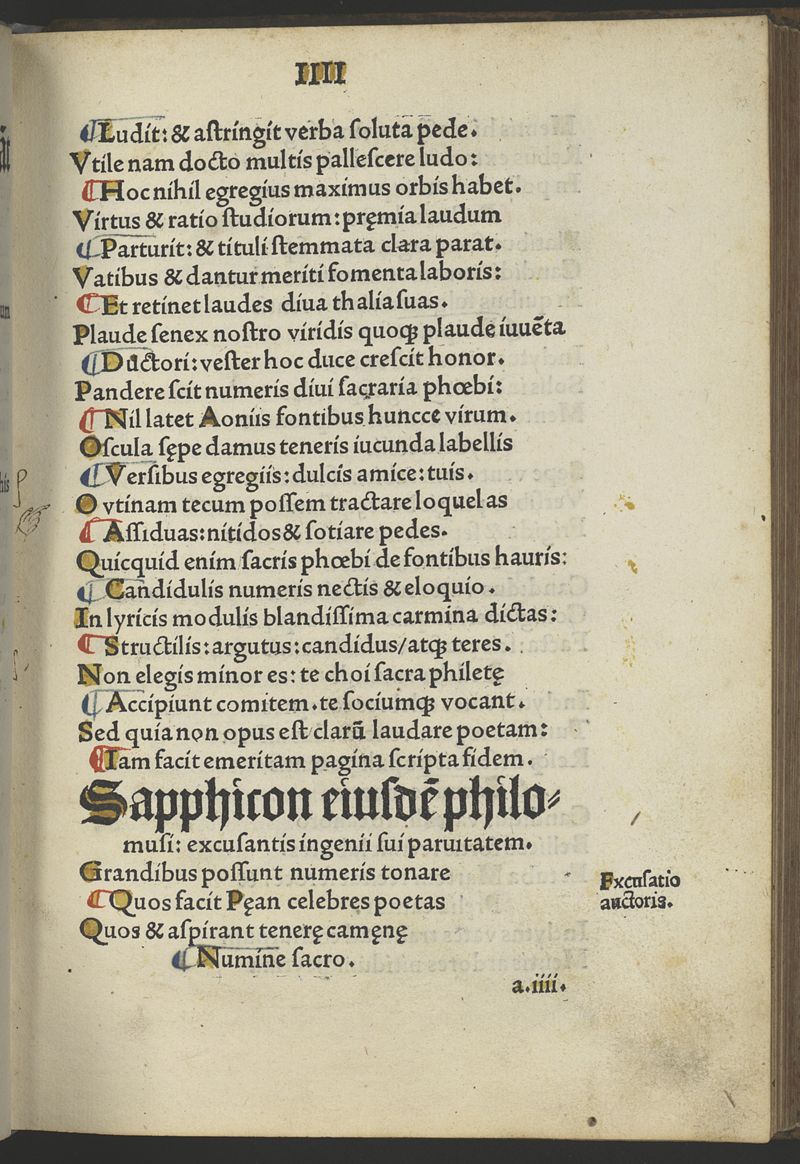 IIII
¶Ludit: & aſtringit verba ſoluta pede.
Vtile nam docto multis palleſcere ludo:
¶Hoc nihil egregius maximus orbis habet.
Virtus & ratio ſtudiorum: pręmia laudum
¶Parturit: & tituli ſtemmata clara parat.
Vatibus & dantur meriti fomenta laboris:
¶Et retinet laudes diua thalia ſuas.
Plaude ſenex noſtro viridis quoqꝫ plaude iuuẽta
¶Ductori: veſter hoc duce creſcit honor.
Pandere ſcit numeris diui ſacraria phœbi:
¶Nil latet Aoniis fontibus huncce virum.
Oſcula ſępe damus teneris iucunda labellis
¶Verſibus egregiis: dulcis amice: tuis.
O vtinam tecum poſſem tractare loquelas
¶Aſſiduas: nitidos & ſotiare pedes.
Quicquid enim ſacris phœbi de fontibus hauris:
¶Candidulis numeris nectis & eloquio.
In lyricis modulis blandiſſima carmina dictas:
¶Structilis: argutus: candidus/atqꝫ teres.
Non elegis minor es: te choi ſacra philetę
¶Accipiunt comitem. te ſociumqꝫ vocant.
Sed quia non opus eſt clarũ laudare poetam:
¶Iam facit emeritam pagina ſcripta fidem.
Sapphicon eiuſdẽ philo⸗
muſi: excuſantis ingenii ſui paruitatem.
Grandibus poſſunt numeris tonare
¶Quos facit Pęan celebres poetas
Quos & aſpirant tenerę camęnę
¶Numine ſacro.
Excuſatio
auctoris.
a.iiii.